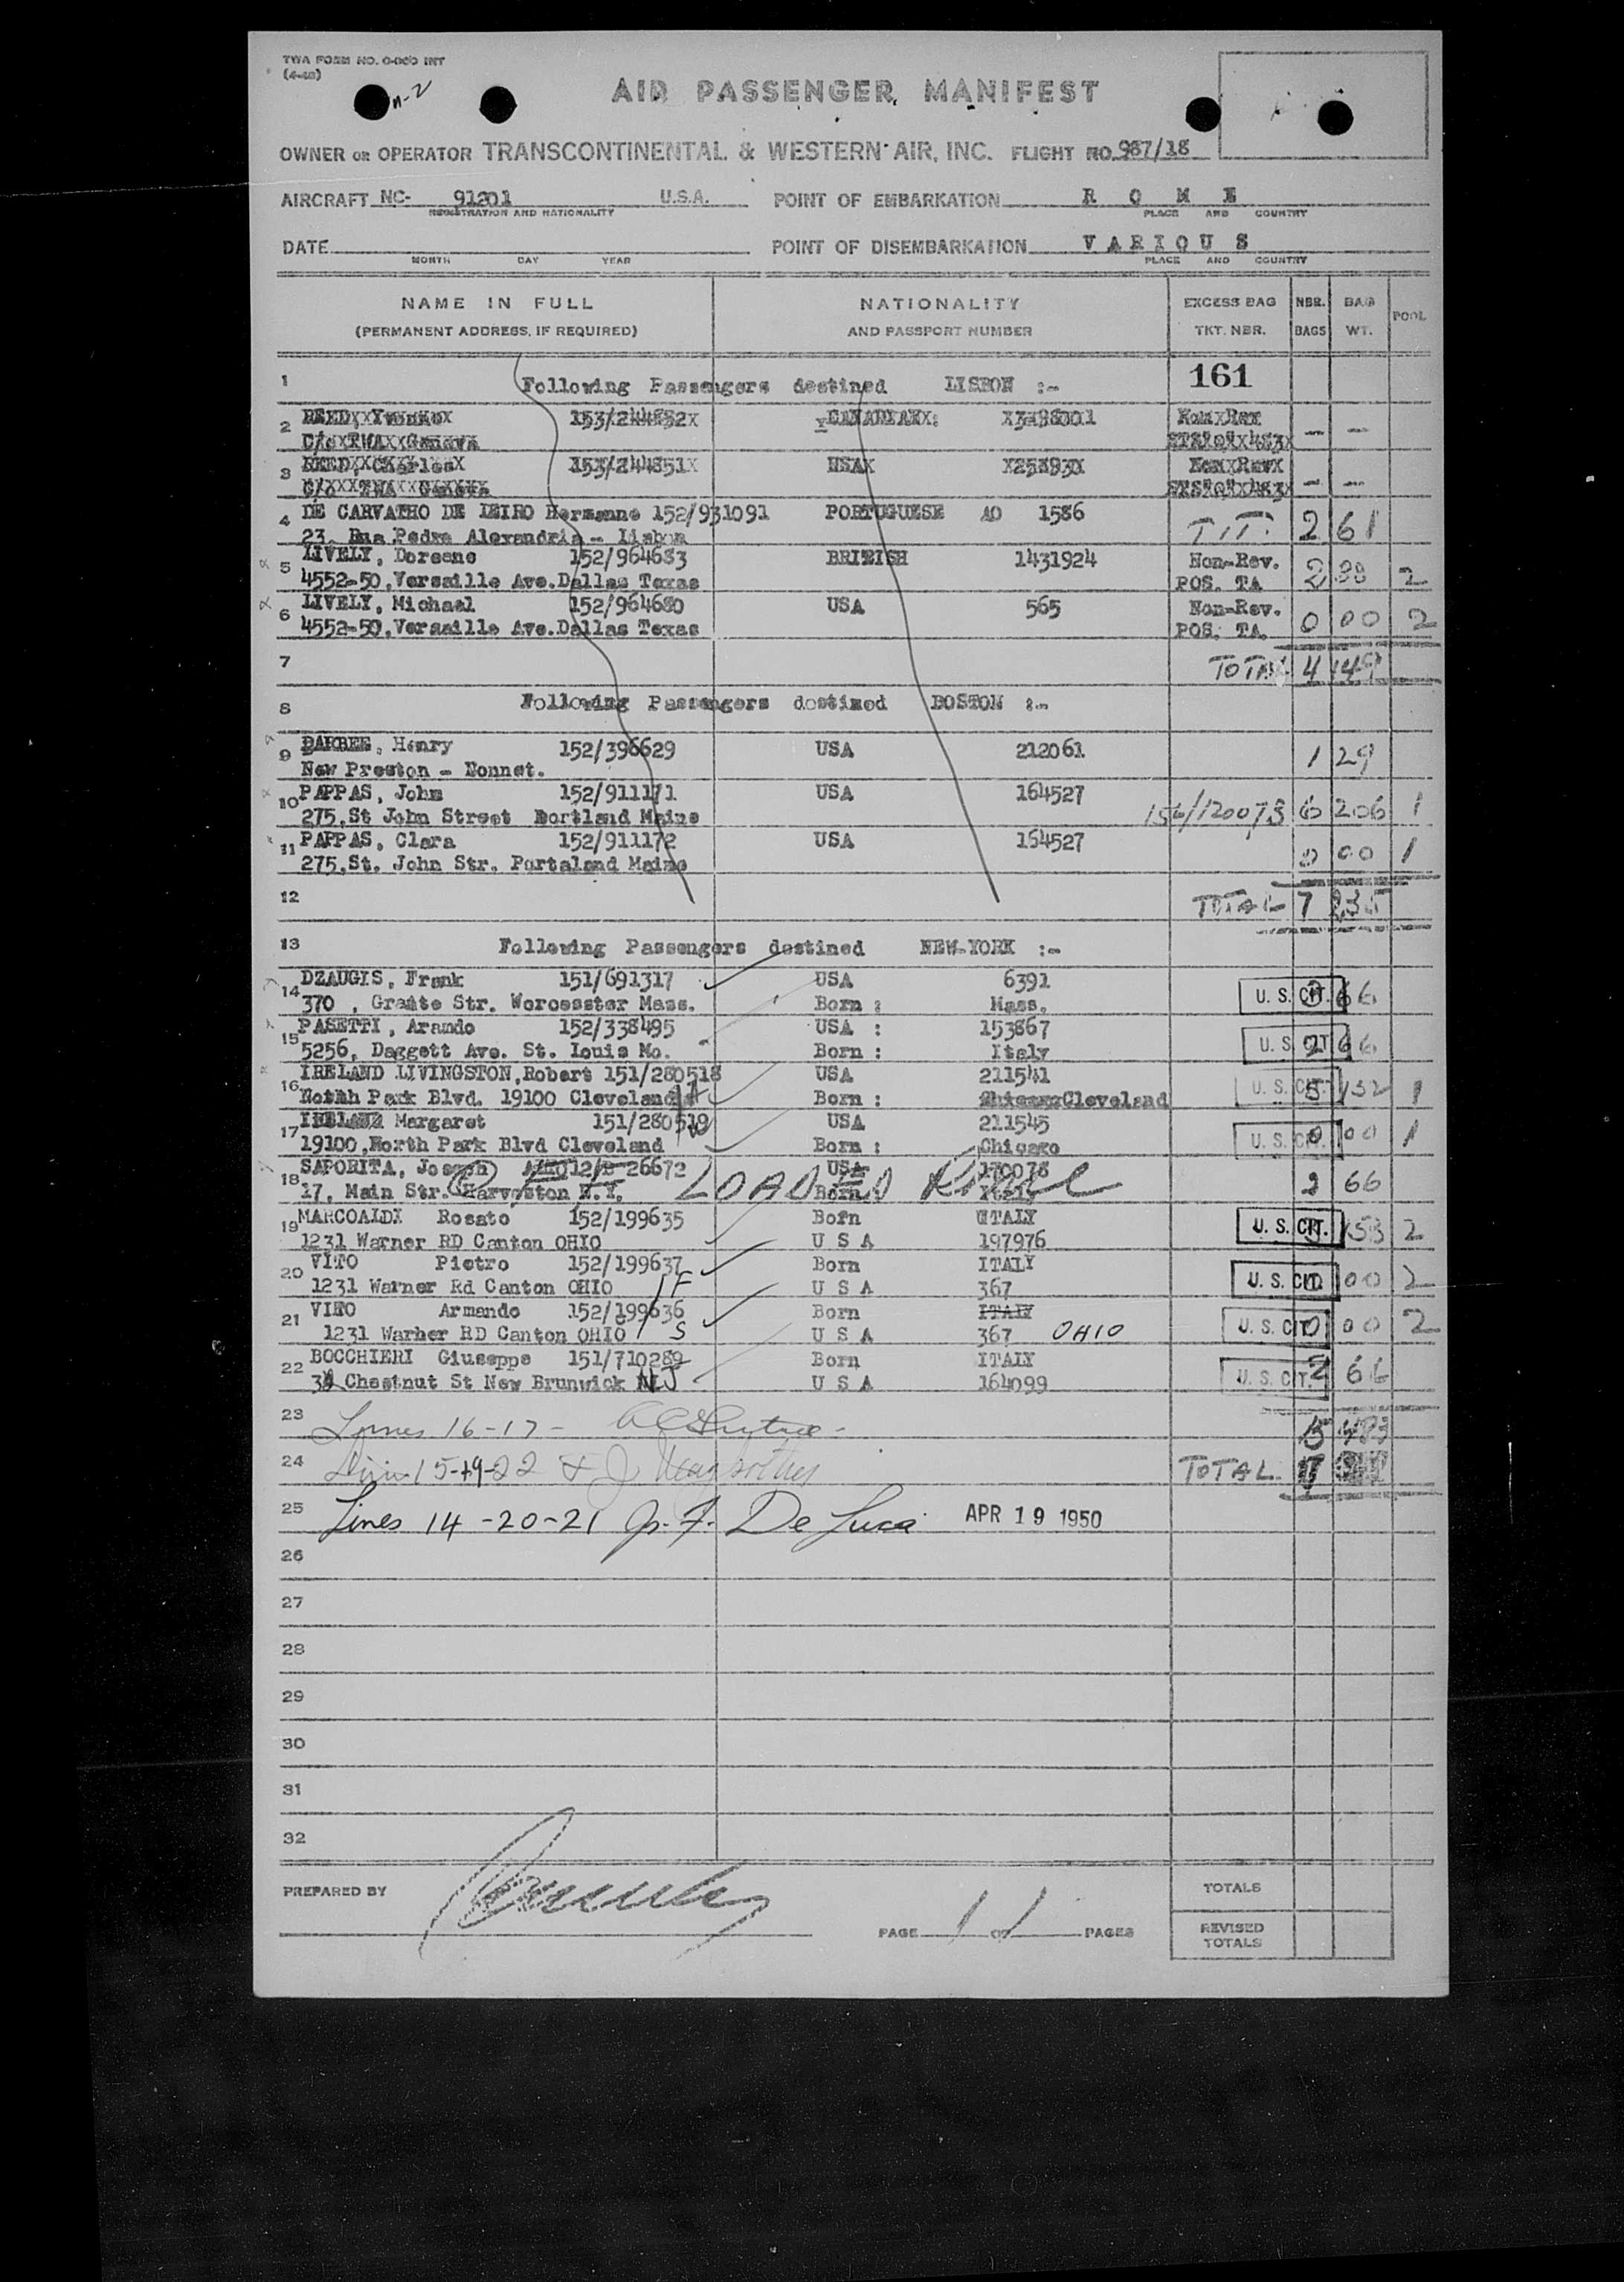 TWA FORM NO. 0-000 INT
(4-48)
n-2
AIR PASSENGER MANIFEST
OWNER OR OPERATOR TRANSCONTINENTAL & WESTERN AIR, INC. FLIGHT NO. 987/18
AIRCRAFT NC- 91201 U.S.A. POINT OF EMBARKATION R O M E
REGISTRATION AND NATIONALITY PLACE AND COUNTRY
DATE POINT OF DISEMBARKATION V A R I O U S
MONTH DAY YEAR PLACE AND COUNTRY
NAME IN FULL NATIONALITY EXCESS BAG NBR. BAG POOL
(PERMANENT ADDRESS, IF REQUIRED) AND PASSPORT NUMBER TKT. NBR. BAGS WT.
161
1 Following Passengers destined LISBON :-
2 REED, Yvonne 153/244852 CANADIAN 
C/o TWA Geneva - -
3 REED, Charles 153/244851 USA 
C/o TWA Geneva - -
4 DE CARVALHO DE LEIRO Hermanno 152/931091 PORTUGUESE AO 1586 T.T. 2 61
23, Rua Pedra Alexandria - Lisbon
5 LIVELY, Doreene 152/964683 BRITISH 1431924 Non-Rev.
4552-50,Versaille Ave.Dallas Texas POS. TA 2 88 2
6 LIVELY, Michael 152/964680 USA 565 Non-Rev.
4552-50,Versaille Ave.Dallas Texas POS. TA. 0 00 2
7 TOTAL 4 149
8 Following Passengers destined BOSTON :-
9 BARBEE, Henry 152/396629 USA 212061 1 29
New Preston - Nonnet.
10 PAPPAS, John 152/911171 USA 164527
275,St John Street Portland Maine 152/120073 6 206 1
11 PAPPAS, Clara 152/911172 USA 164527
275,St. John Str. Portaland Maine 0 00 1
12 TOTAL 7 235
13 Following Passengers destined NEW-YORK :-
14 DZAUGIS, Frank 151/691317 USA 6391
370 , Granite Str. Worcesster Mass. Born : Mass. U. S. CIT. 66
15 PASETTI, Arando 152/338495 USA : 153867
5256, Daggett Ave. St. Louis Mo. Born : Italy U. S. CIT. 2 66
16 IRELAND LIVINGSTON,Robert 151/280518 USA 211541
North Park Blvd. 19100 Cleveland Born : Cleveland U. S. CIT. 5 132 1
17 IRELAND Margaret 151/280519 USA 211545
19100,North Park Blvd Cleveland Born : Chicago U. S. CIT. 0 00 1
18 SAPORITA, Joseph 26672 USA 170078
17, Main Str. Harveston N.Y. LOADED Born Italy 2 66
19 MARCOALDI Rosato 152/199635 Born ITALY
1231 Warner RD Canton OHIO U S A 197976 U. S. CIT. 153 2
20 VITO Pietro 152/199637 Born ITALY
1231 Warner Rd Canton OHIO F U S A 367 U. S. CIT. 0 00 2
21 VITO Armando 152/199636 Born ITALY
1231 Warher RD Canton OHIO S U S A 367 OHIO U. S. CIT. 0 00 2
22 BOCCHIERI Giuseppe 151/710289 Born ITALY
34 Chestnut St New Brunwick NJ U S A 164099 U. S. CIT. 2 66
23 Lines 16-17- 15 483
24 Lines 15-19-22 TOTAL 17
25 Lines 14-20-21 De Luca APR 19 1950
26
27
28
29
30
31
32
PREPARED BY TOTALS
PAGE 1 OF 1 PAGES REVISED
TOTALS